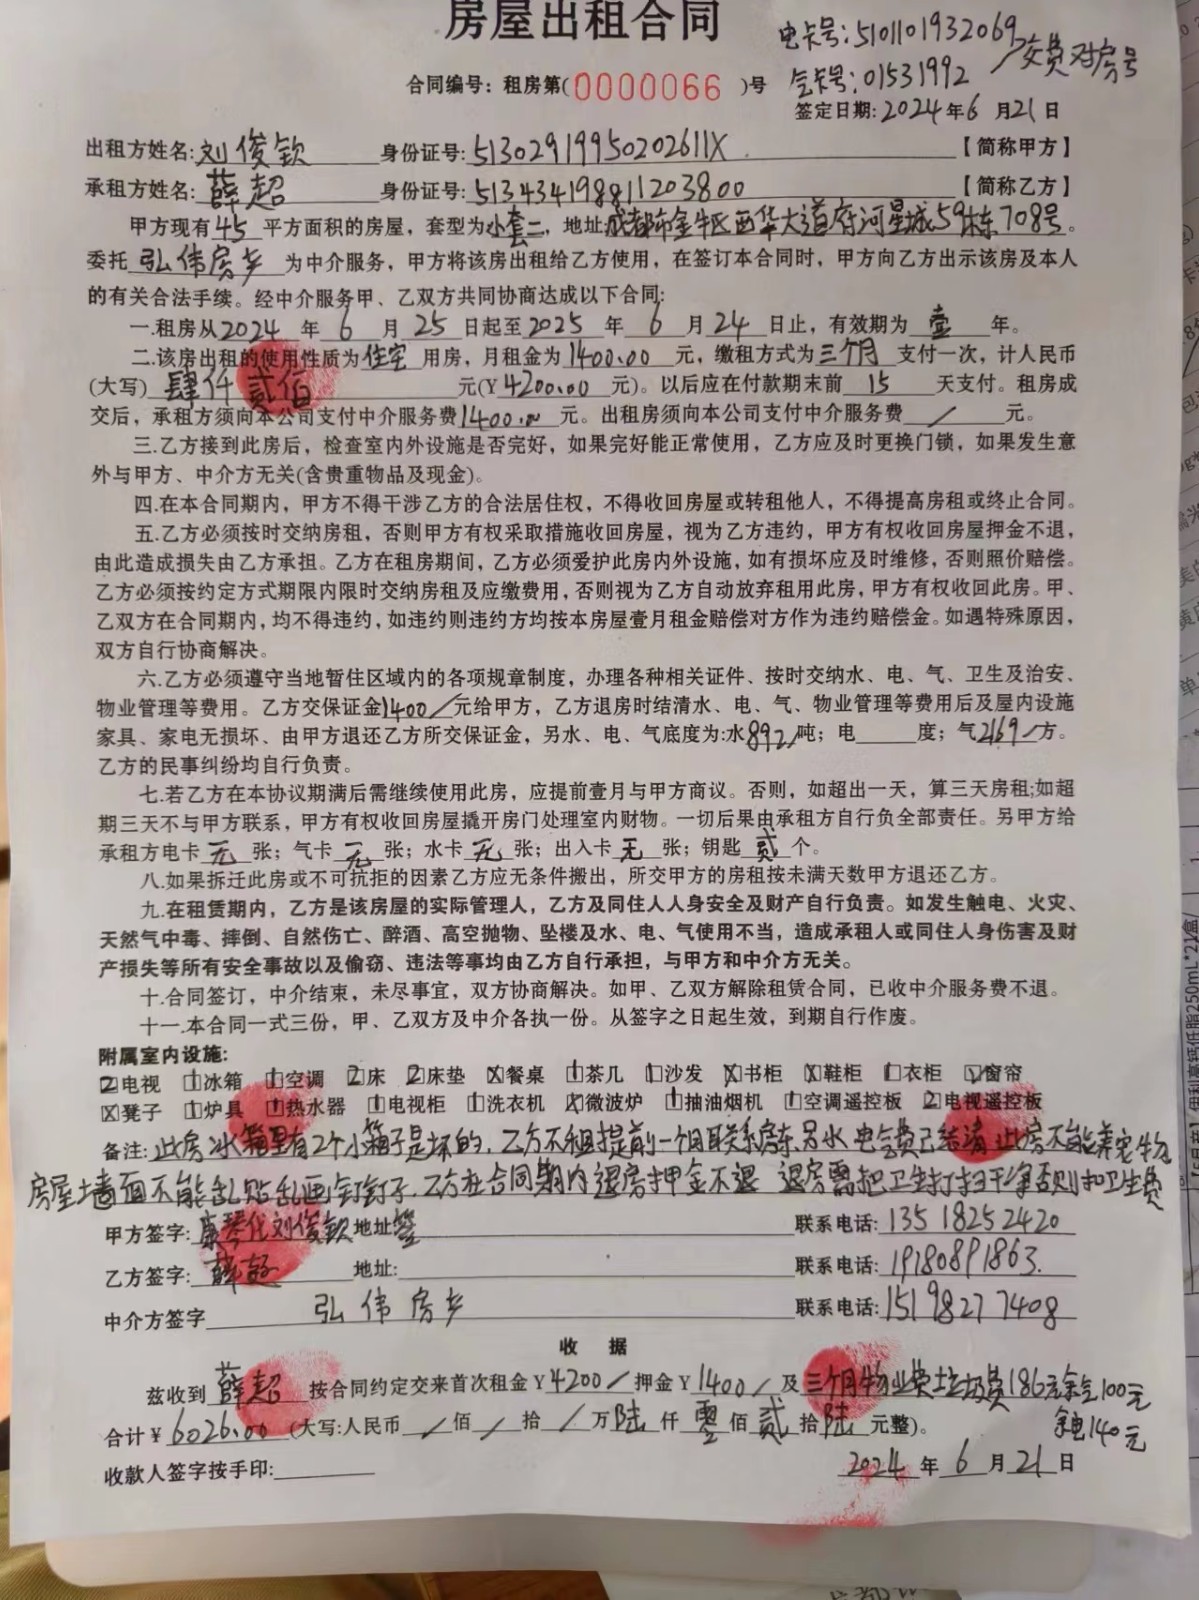 房屋出租合同
电卡号:5101101932069
交费对房号
合同编号：租房第(0000066)号
气卡号:01531992
签定日期:2024年6月21日
出租方姓名:刘俊钦 身份证号:51302919950202611X 【简称甲方】
承租方姓名:薛超 身份证号:513434198811203800 【简称乙方】
甲方现有45平方面积的房屋，套型为小套二，地址成都市金牛区西华大道府河星城59栋708号。
委托弘伟房产为中介服务，甲方将该房出租给乙方使用，在签订本合同时，甲方向乙方出示该房及本人
的有关合法手续。经中介服务甲、乙双方共同协商达成以下合同:
一.租房从2024年6月25日起至2025年6月24日止，有效期为壹年。
二.该房出租的使用性质为住宅用房，月租金为1400.00元，缴租方式为三个月支付一次，计人民币
(大写)肆仟贰佰元(¥4200.00元)。以后应在付款期末前15天支付。租房成
交后，承租方须向本公司支付中介服务费1400.00元。出租房须向本公司支付中介服务费/元。
三.乙方接到此房后，检查室内外设施是否完好，如果完好能正常使用，乙方应及时更换门锁，如果发生意
外与甲方、中介方无关(含贵重物品及现金)。
四.在本合同期内，甲方不得干涉乙方的合法居住权，不得收回房屋或转租他人，不得提高房租或终止合同。
五.乙方必须按时交纳房租，否则甲方有权采取措施收回房屋，视为乙方违约，甲方有权收回房屋押金不退，
由此造成损失由乙方承担。乙方在租房期间，乙方必须爱护此房内外设施，如有损坏应及时维修，否则照价赔偿。
乙方必须按约定方式期限内限时交纳房租及应缴费用，否则视为乙方自动放弃租用此房，甲方有权收回此房。甲、
乙双方在合同期内，均不得违约，如违约则违约方均按本房屋壹月租金赔偿对方作为违约赔偿金。如遇特殊原因，
双方自行协商解决。
六.乙方必须遵守当地暂住区域内的各项规章制度，办理各种相关证件、按时交纳水、电、气、卫生及治安、
物业管理等费用。乙方交保证金1400/元给甲方，乙方退房时结清水、电、气、物业管理等费用后及屋内设施
家具、家电无损坏、由甲方退还乙方所交保证金，另水、电、气底度为:水892/吨；电　　度；气2169/方。
乙方的民事纠纷均自行负责。
七.若乙方在本协议期满后需继续使用此房，应提前壹月与甲方商议。否则，如超出一天，算三天房租;如超
期三天不与甲方联系，甲方有权收回房屋撬开房门处理室内财物。一切后果由承租方自行负全部责任。另甲方给
承租方电卡无张；气卡无张；水卡无张；出入卡无张；钥匙贰个。
八.如果拆迁此房或不可抗拒的因素乙方应无条件搬出，所交甲方的房租按未满天数甲方退还乙方。
九.在租赁期内，乙方是该房屋的实际管理人，乙方及同住人人身安全及财产自行负责。如发生触电、火灾、
天然气中毒、摔倒、自然伤亡、醉酒、高空抛物、坠楼及水、电、气使用不当，造成承租人或同住人身伤害及财
产损失等所有安全事故以及偷窃、违法等事均由乙方自行承担，与甲方和中介方无关。
十.合同签订，中介结束，未尽事宜，双方协商解决。如甲、乙双方解除租赁合同，已收中介服务费不退。
十一.本合同一式三份，甲、乙双方及中介各执一份。从签字之日起生效，到期自行作废。
附属室内设施:
2电视 1冰箱 1空调 2床 2床垫 X餐桌 1茶几 1沙发 X书柜 X鞋柜 1衣柜 ✓窗帘
X凳子 1炉具 1热水器 1电视柜 1洗衣机 X微波炉 1抽油烟机 1空调遥控板 2电视遥控板
备注:此房冰箱里有2个小箱子是坏的，乙方不租提前一个月联系房东，另水电气费已结清 此房不能养宠物
房屋墙面不能乱贴乱画钉钉子，乙方在合同期内退房押金不退 退房需把卫生打扫干净否则扣卫生费
甲方签字:康琴代刘俊钦 地址签 联系电话:13518252420
乙方签字:薛超 地址: 联系电话:19180891863.
中介方签字 弘伟房产 联系电话:15198277408
收 据
兹收到薛超按合同约定交来首次租金¥4200/押金¥1400/及三个月物业费垃圾费186元余气100元
余电140元
合计¥6026.00(大写:人民币/佰/拾/万陆仟零佰贰拾陆元整)。
收款人签字按手印:
2024年6月21日